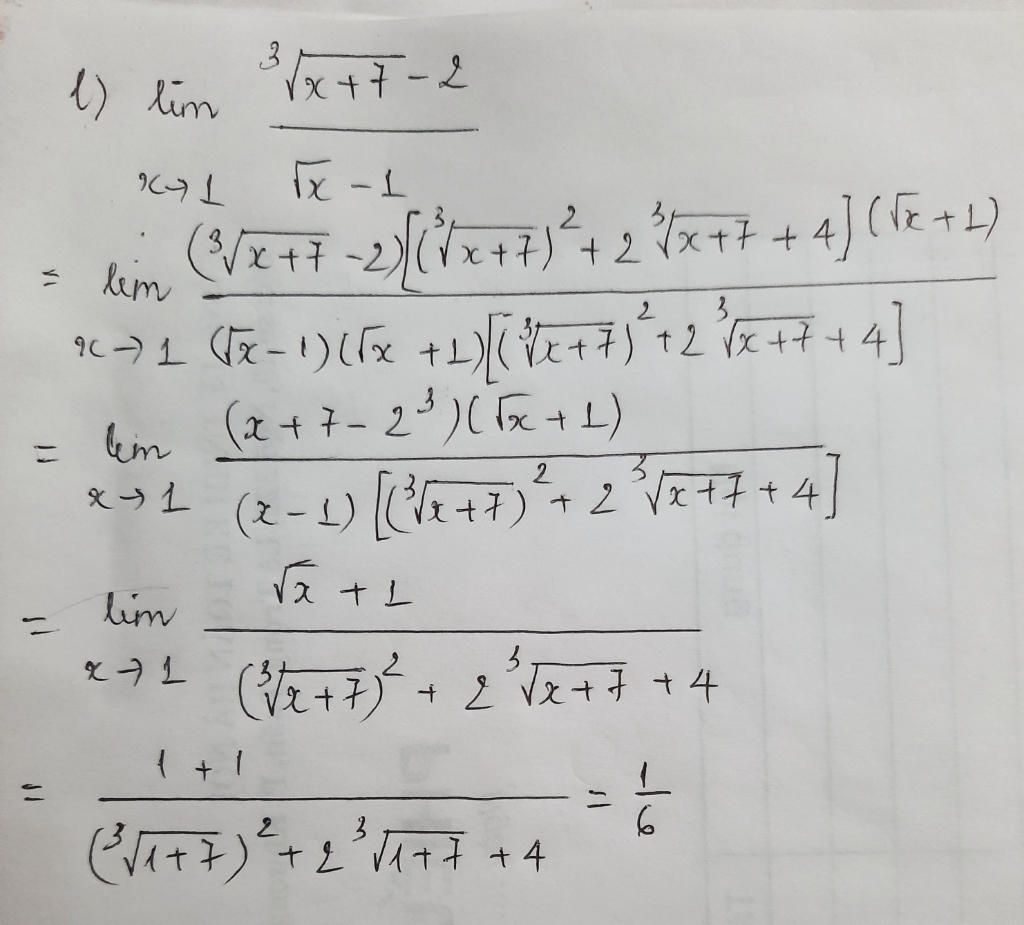 l) lim_{x→1} \frac{\sqrt[3]{x+7} - 2}{\sqrt{x} - 1}
= lim_{x→1} \frac{(\sqrt[3]{x+7} - 2)[(\sqrt[3]{x+7})^2 + 2\sqrt[3]{x+7} + 4](\sqrt{x} + 1)}{(\sqrt{x} - 1)(\sqrt{x} + 1)[(\sqrt[3]{x+7})^2 + 2\sqrt[3]{x+7} + 4]}
= lim_{x→1} \frac{(x + 7 - 2^3)(\sqrt{x} + 1)}{(x - 1)[(\sqrt[3]{x+7})^2 + 2\sqrt[3]{x+7} + 4]}
= lim_{x→1} \frac{\sqrt{x} + 1}{(\sqrt[3]{x+7})^2 + 2\sqrt[3]{x+7} + 4}
= \frac{1 + 1}{(\sqrt[3]{1+7})^2 + 2\sqrt[3]{1+7} + 4} = \frac{1}{6}